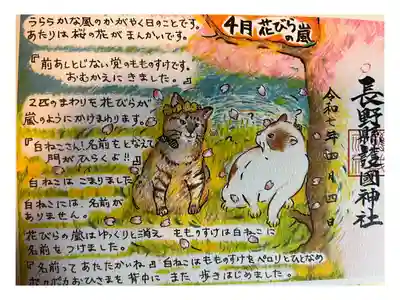 4月 花びらの嵐
うららかな嵐のかがやく日のことです。
あたりは桜の花が まんかいです。
『前あしとじない党のもものすけです。
おむかえに きました。』
2匹のまわりを 花びらが
嵐のようにかけまわります。
『白ねこさん!名前をとなえて
門がひらくよ!!』
白ねこは こまりました
白ねこには、名前が
ありません。
花びらの嵐はゆっくりと消え もものすけは白ねこに
名前をつけました。
『名前って あたたかいね。』白ねこはもものすけをペロリとひとなめ
ポカポカおひさまを 背中に また 歩きはじめました。
長野縣護國神社
令和七年四月四日